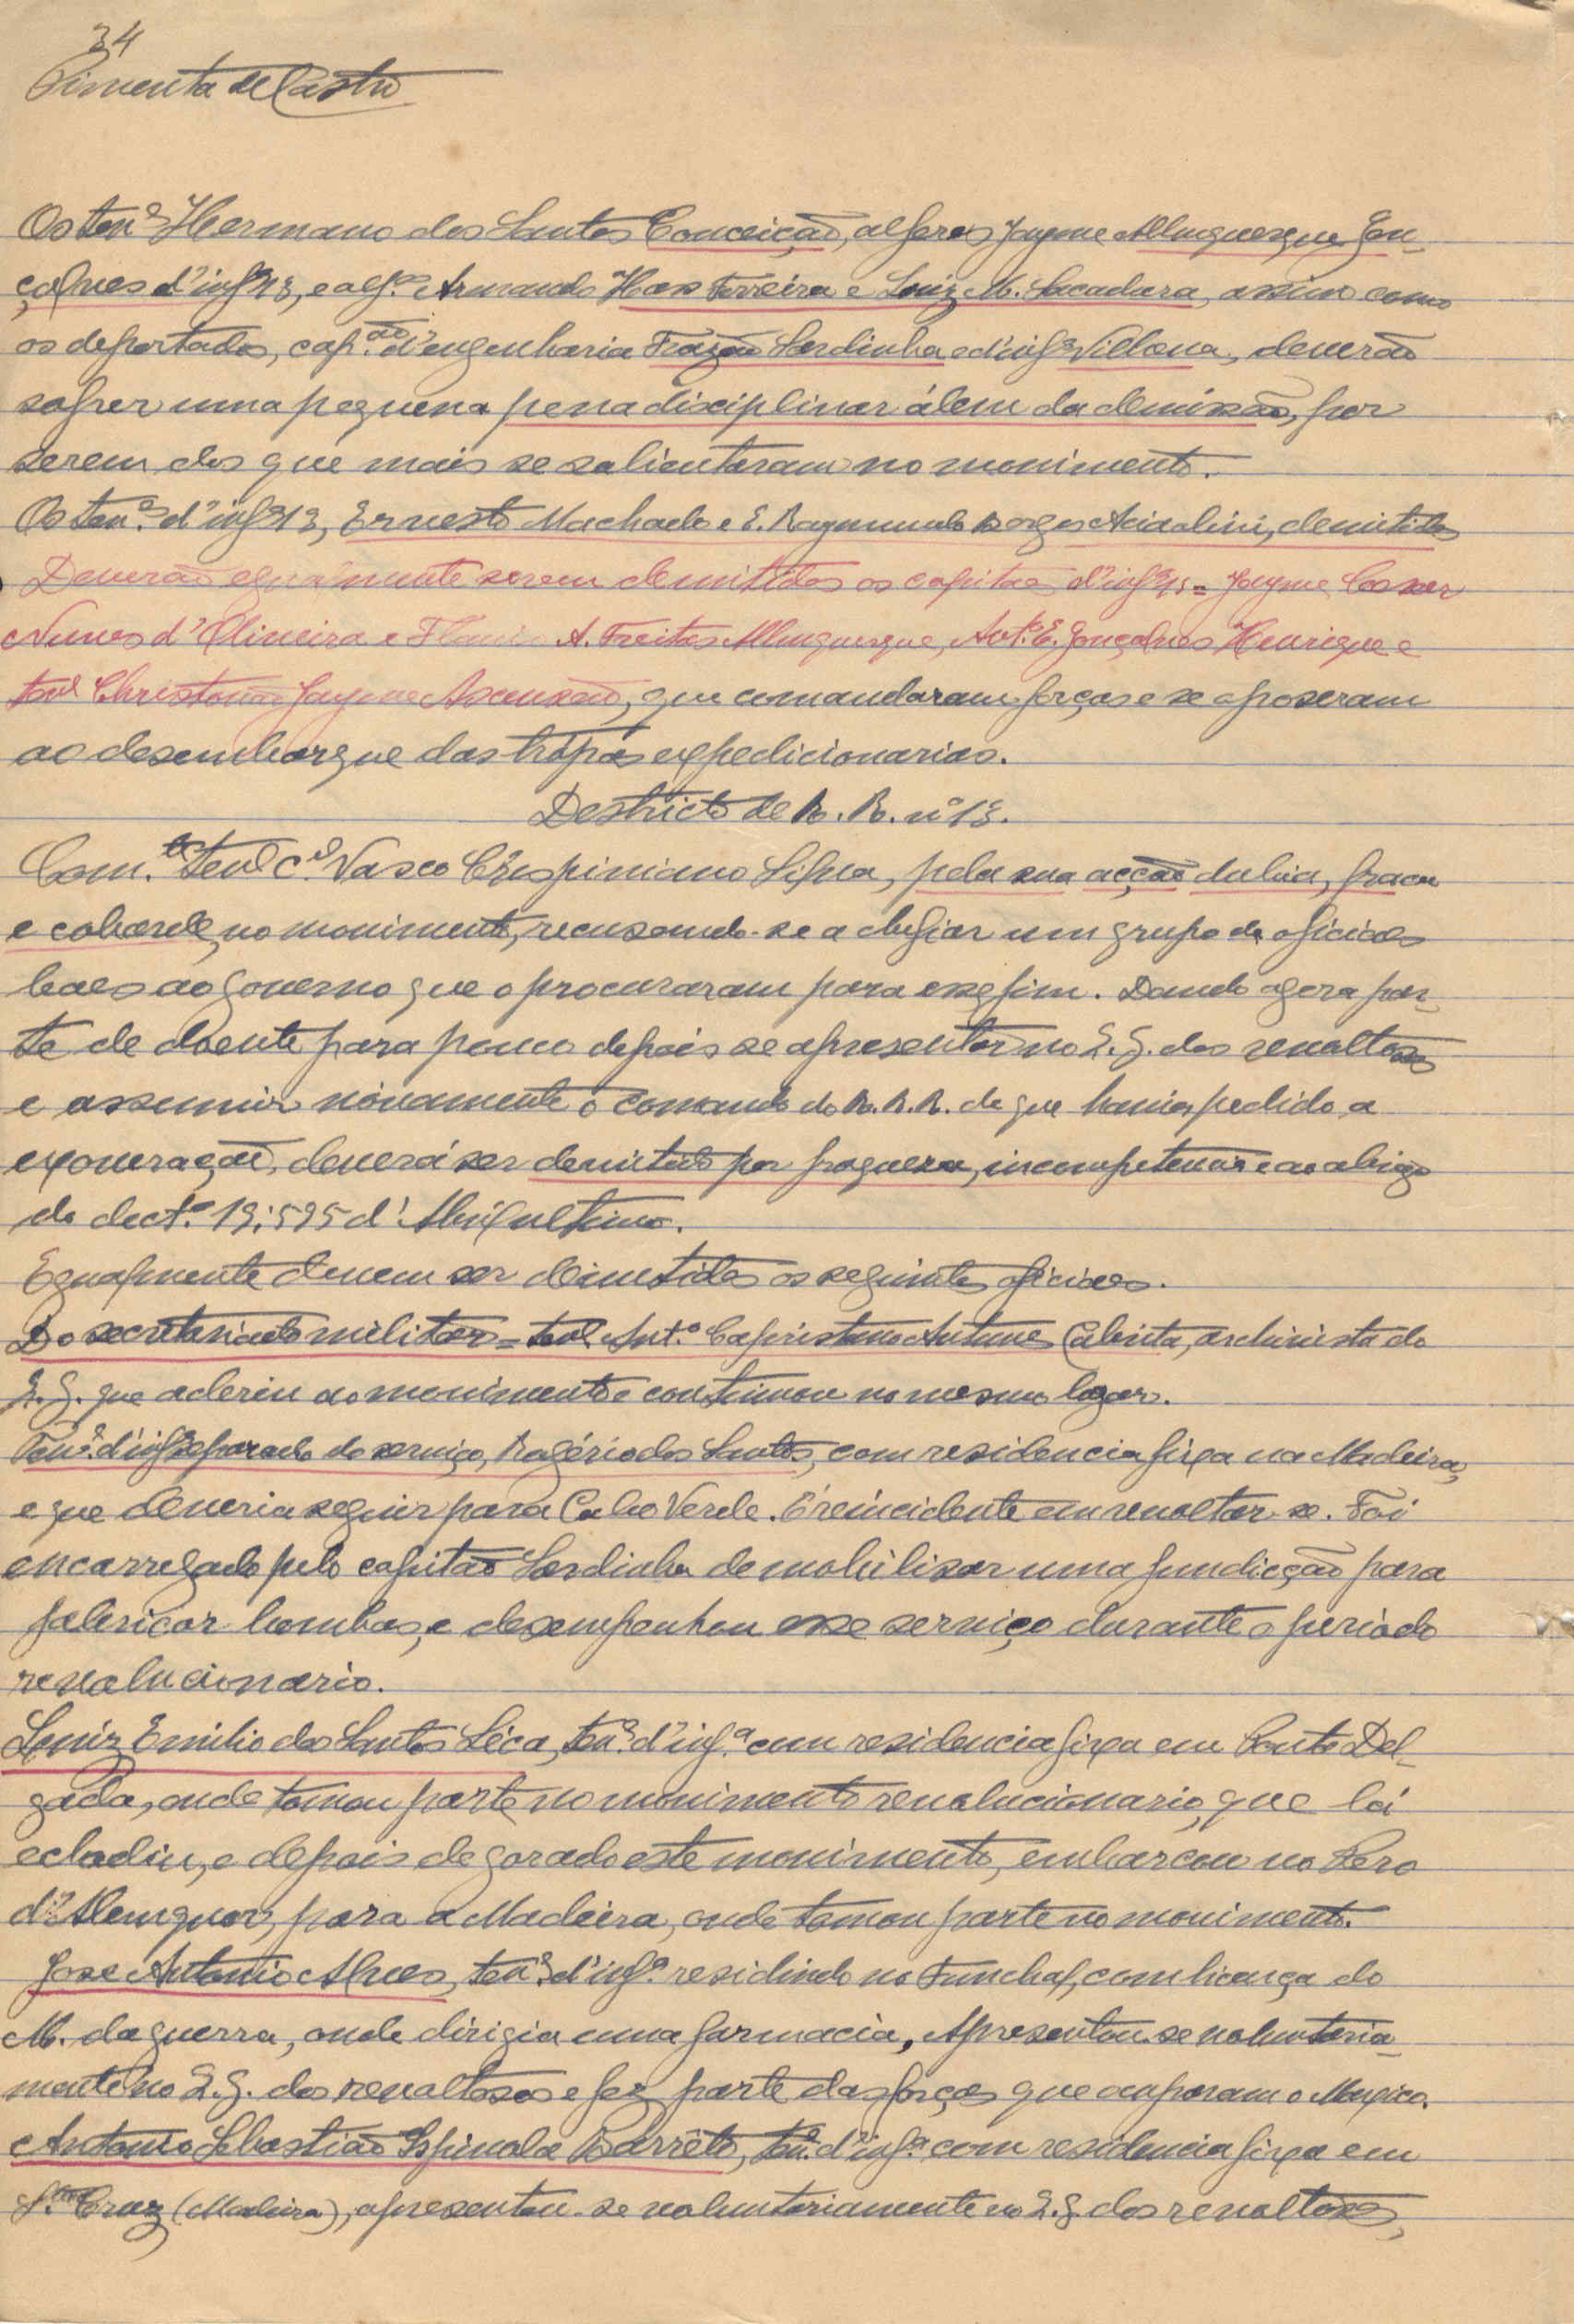 34
Pimenta de Castro
Os ten.es Hermano dos Santos Conceição, alferes Jayme Albuquerque Gon-
çalves d'inf.a 13, e alf.es Armando Hass Ferreira e Luiz M. Sacadura, assim como
os deportados, cap.ão d'engenharia Frazão Sardinha e d'inf.a Vilhena, deverão
sofrer uma pequena pena disciplinar álem da demissão, por
serem dos que mais se salientaram no movimento.
Os ten.es d'inf.a 13, Ernesto Machado e E. Raymundo Borges Aciaolini, demitidos
Deverão egualmente serem demitidos os capitães d'inf.a 13 = Jayme Cesar
Nunes d'Oliveira e A. Freitas Albuquerque, Ant.o E. Gonçalves Henrique e
ten.e Christovão Jayme Ascensão, que comandaram forças e se oposeram
ao desembarque das trópas expedicionarias.
Destricto de R. R. nº 13.
Com.te ten.e c.el Vasco Crispiniano Silva, pela sua acção dubia, fraca
e cobarde, no movimento, recusando-se a chefiar um grupo de oficiaes
leaes ao governo que o procuraram para esse fim. Dando agora par-
te de doente para pouco depois se apresentar no Q. G. dos revoltosos
e assumir nóvamente o comando do R. R. R. de que havia pedido a
exoneração, deverá ser demitido por fraqueza, incompetencia e ao abrigo
do dect.o 19:595 d'Abril ultimo.
Egualmente devem ser demitidos os seguintes oficiaes.
Do secretariado militar = ten.e Ant.o Capristano Antunes Cabrita, archivista do
Q. G. que aderiu ao movimento e continuou no mesmo logar.
Ten.e d'inf.a separado do serviço, Rogério dos Santos, com residencia fixa na Madeira,
e que deveria seguir para Cabo Verde. É reincidente em revoltar-se. Foi
encarregado pelo capitão Sardinha de mobilisar uma fundicção para
fabricar bombas, e desempenhou esse serviço durante o periodo
revolucionario.
Luiz Emilio dos Santos Léca, ten.e d'inf.a com residencia fixa em Ponta Del-
gada, onde tomou parte no movimento revolucionario, que lá
eclodiu, e depois de gorado este movimento, embarcou no Pero
d'Alemquer, para a Madeira, onde tomou parte no movimento.
José Antonio Alves, ten.e d'inf.a residindo no Funchal, com licença do
M. da guerra, onde dirigia uma farmacia, Apresentou-se voluntaria-
mente no Q. G. dos revoltosos e fez parte das forças que ocuparam o Maxico.
Antonio Sebastião Espinola Barrêto, ten.e d'inf.a com residencia fixa em
S.ta Cruz (Madeira), apresentou-se voluntariamente no Q. G. dos revoltosos,